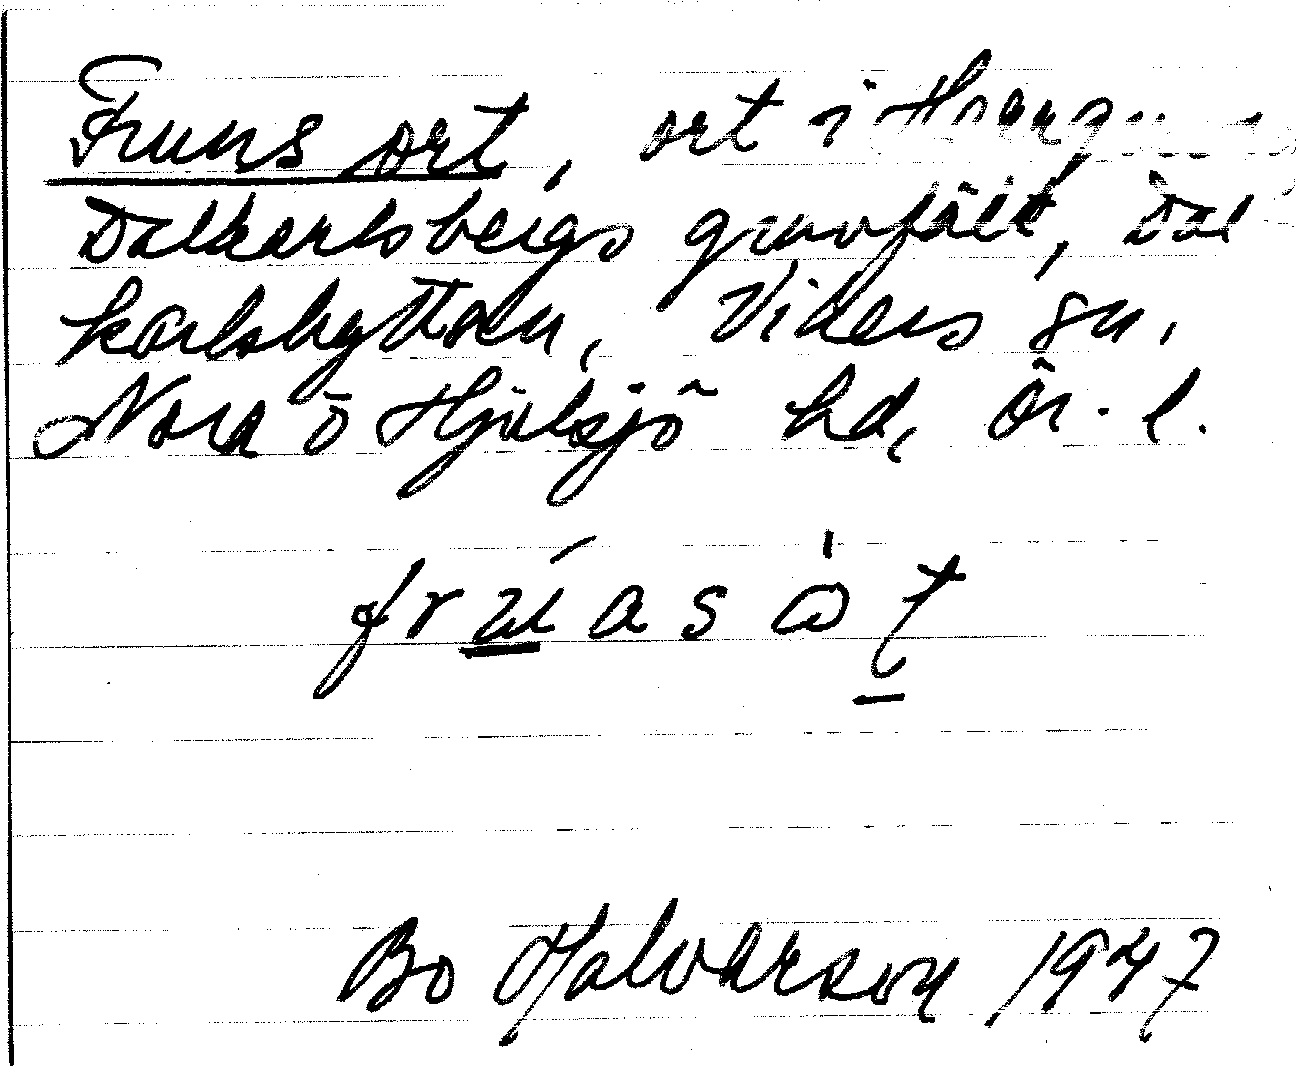 Fruns ort, ort i
Dalkarlsbergs gruvfält, Dal
karlshyttan, Vikers sn,
Nora o Hjulsjö hd, Ör. l.
frúasåt
Bo Halvarson 1947